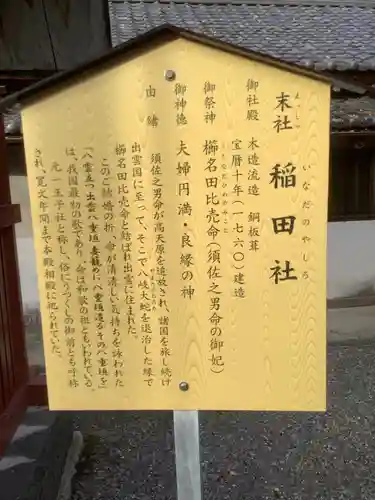 末社 稲田社
まつしゃ いなだのやしろ
御社殿 木造流造 銅板葺
宝暦十年(一七六〇)建造
御祭神 櫛名田比売命(須佐之男命の御妃)
くしなだひめのみこと
御神徳 夫婦円満・良縁の神
由緒
須佐之男命が高天原を追放され、諸国を旅し続け
出雲国に至って、そこで八岐大蛇を退治した縁で
櫛名田比売命と結ばれ出雲に住まれた。
このご結婚の折、命が清清しい気持ちを詠われた
「八雲立つ出雲八重垣妻籠めに八重垣造るその八重垣を」
は、我国最初の歌であり、命は和歌の祖ともいわれている。
元一王子社と称し、俗にうつくしの御前とも呼称
され、寛文年間まで本殿相殿に祀られていた。